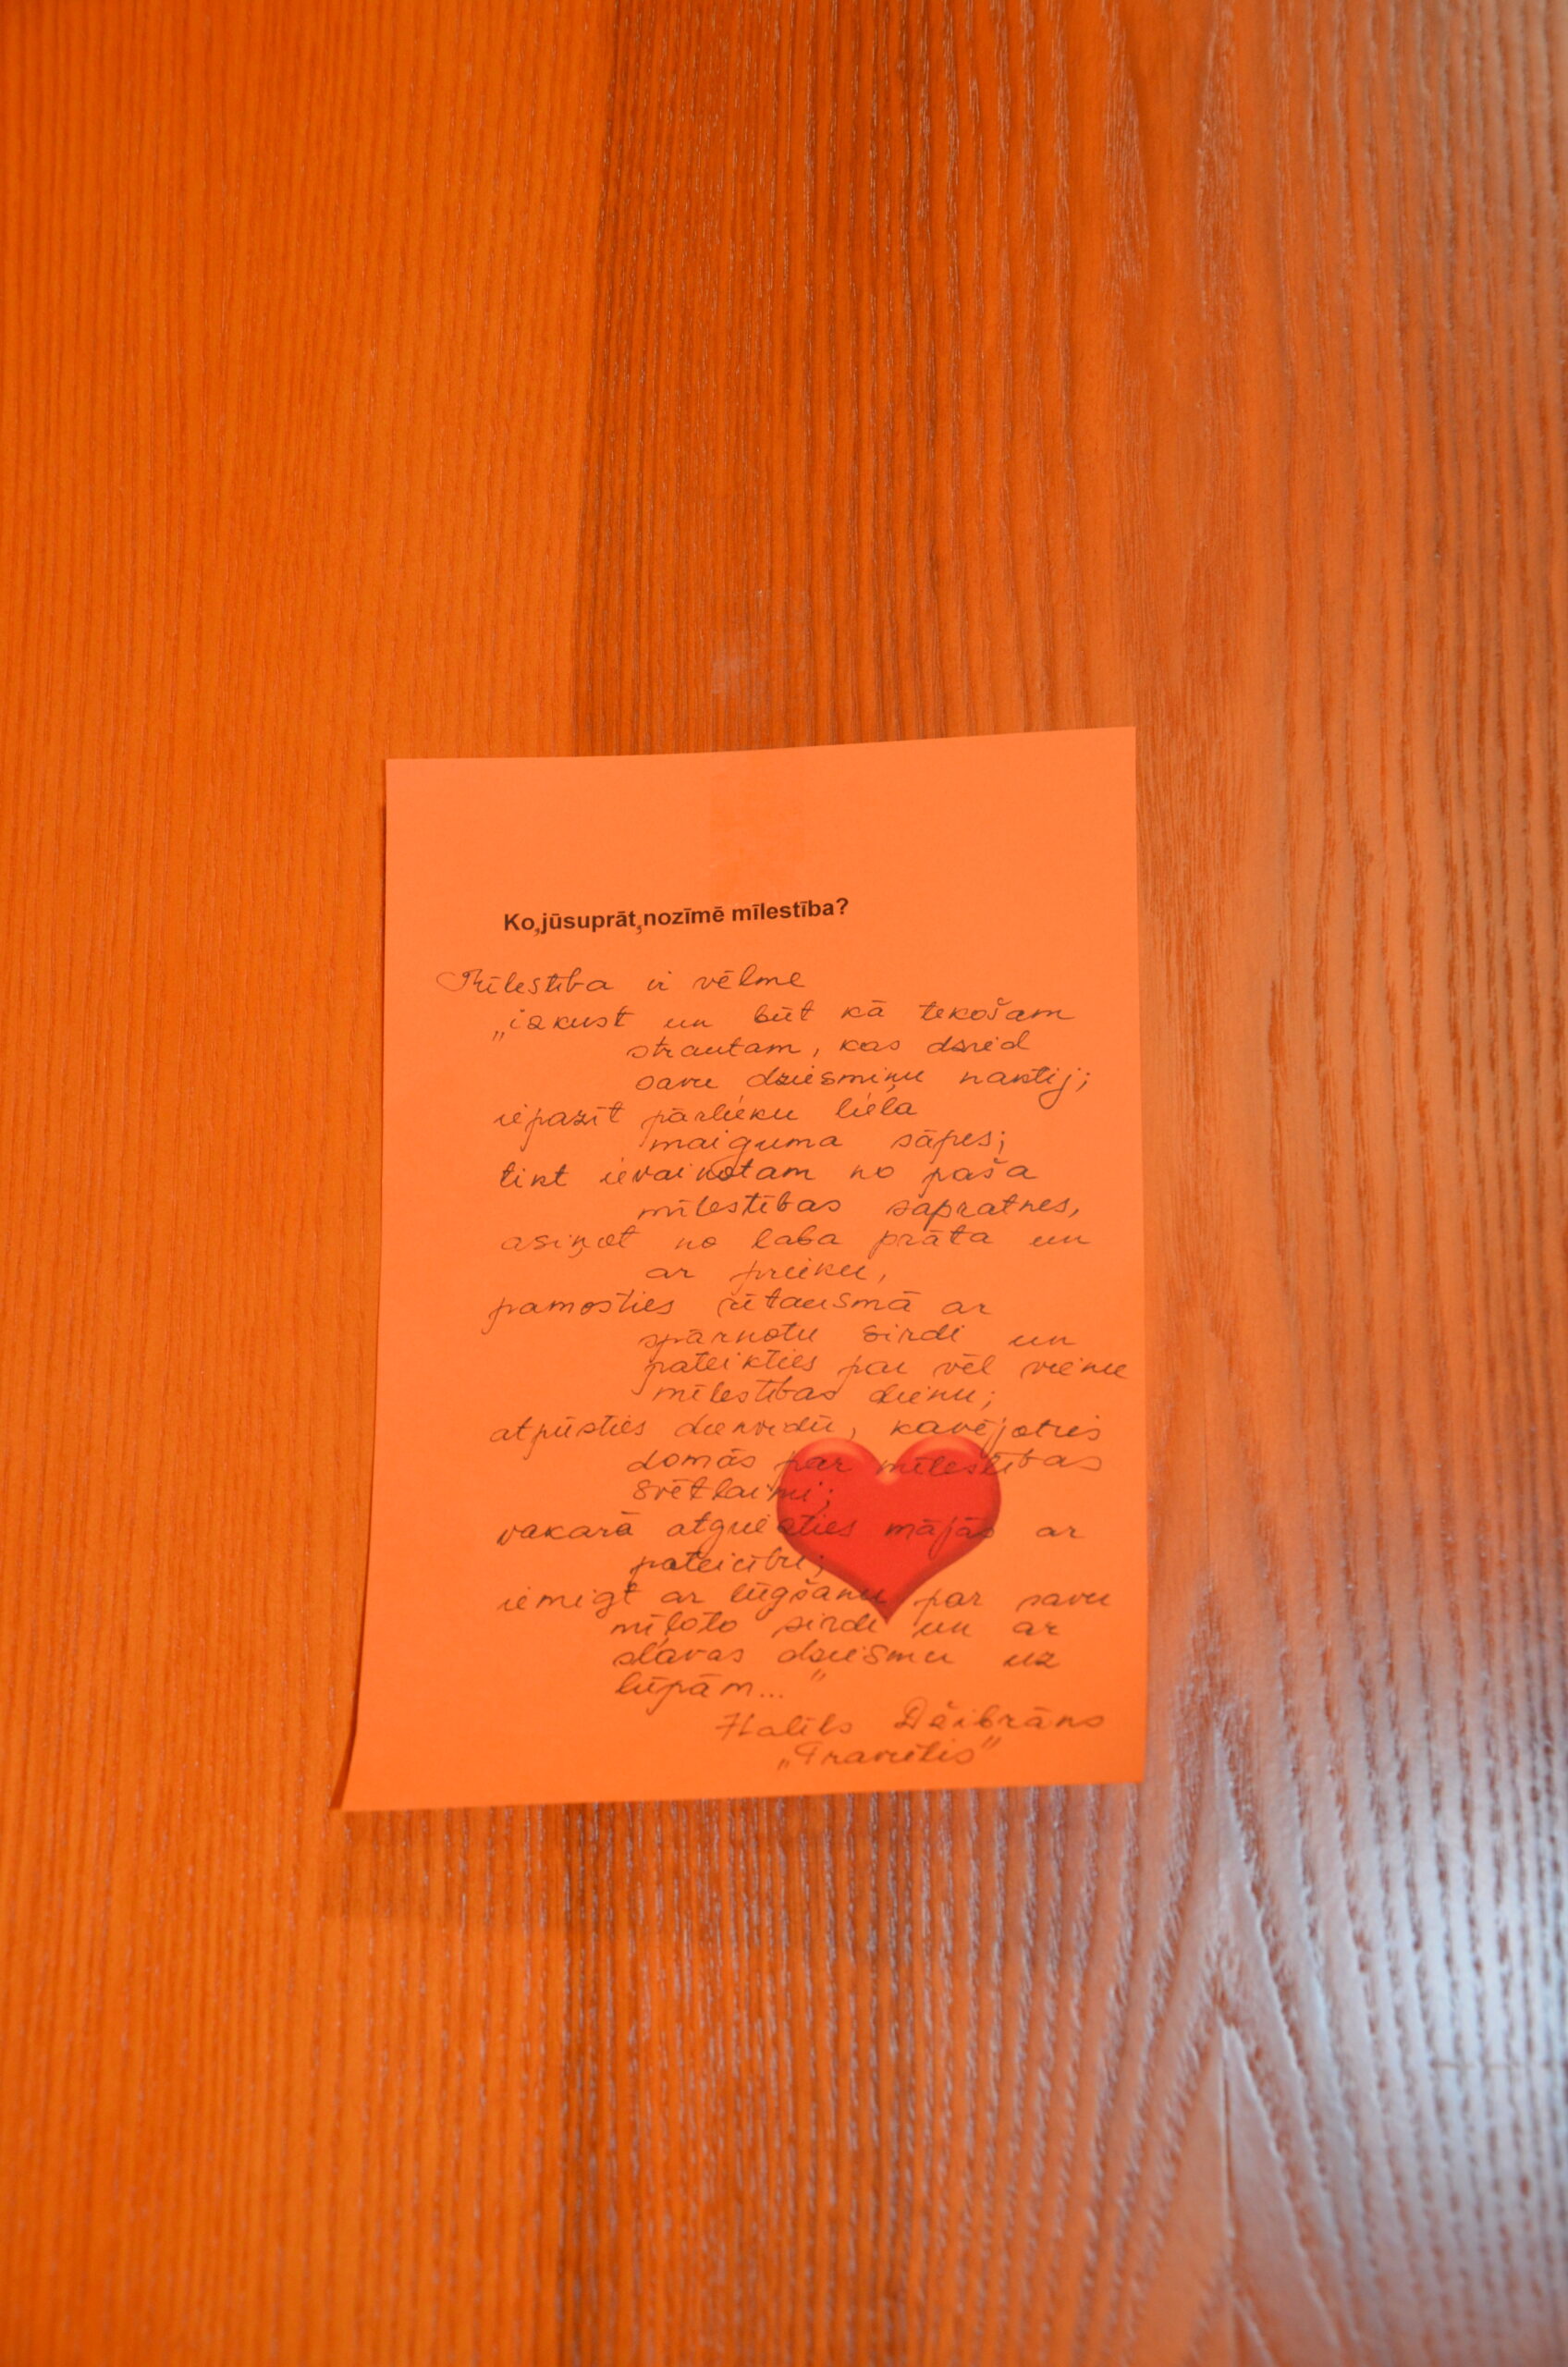 Ko, jūsuprāt, nozīmē mīlestība?
Mīlestība ir vēlme
„izkust un būt kā tekošam
strautam, kas dzied
savu dziesmiņu naktij;
iepazīt pārlieku liela
maiguma sāpes;
tikt ievainotam no paša
mīlestības sapratnes,
asiņot no laba prāta un
ar prieku,
pamosties rītausmā ar
spārnotu sirdi un
pateikties par vēl vienu
mīlestības dienu;
atpūsties dienvidū, kavējoties
domās par mīlestības
svētlaimi;
vakarā atgriezties mājās ar
pateicību;
iemigt ar lūgšanu par savu
mīļoto sirdi un ar
slavas dziesmu uz
lūpām..."
Halīls Džibrāns
„Pravietis"